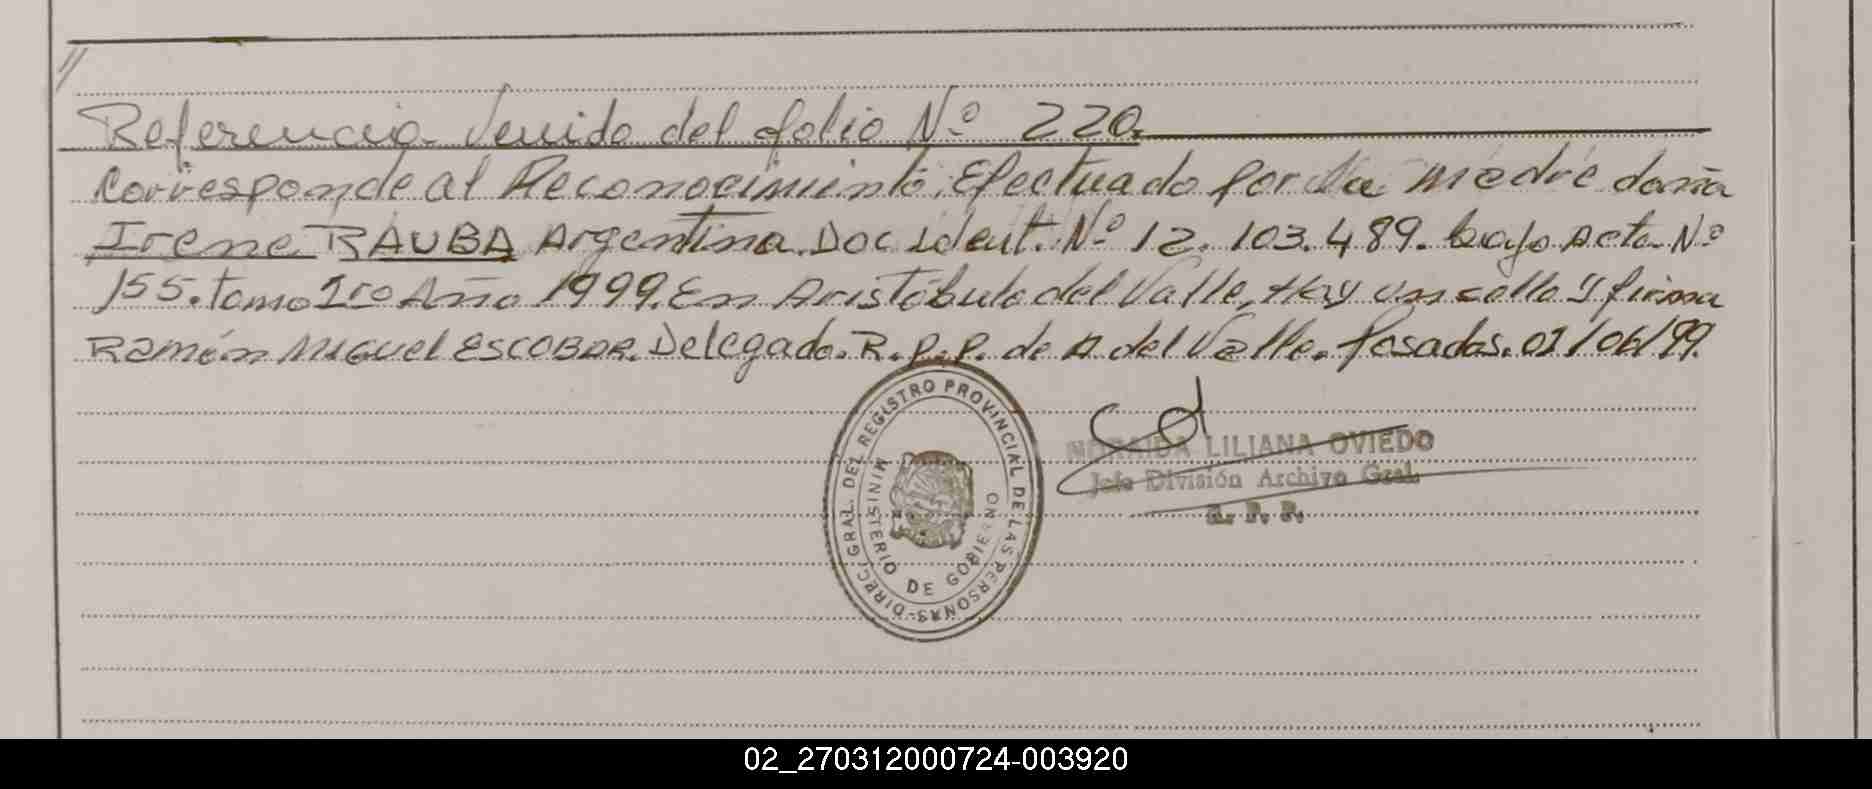 //
Referencia Venida del folio Nº 220.
Corresponde al Reconocimiento, Efectuado por la madre doña
Irene RAUBA Argentina. Doc Ident. Nº 12.103.489. bajo Acta Nº
155. tomo 1ro Año 1999. En Aristóbulo del Valle, Hay un sello y firma
Ramón Miguel ESCOBAR. Delegado. R.P.P. de A del Valle. Posadas. 01/06/99.
DIREC. GRAL. DEL REGISTRO PROVINCIAL DE LAS PERSONAS-
MINISTERIO DE GOBIERNO
NORAIDA LILIANA OVIEDO
Jefe División Archivo Gral.
R. P. P.
02_270312000724-003920